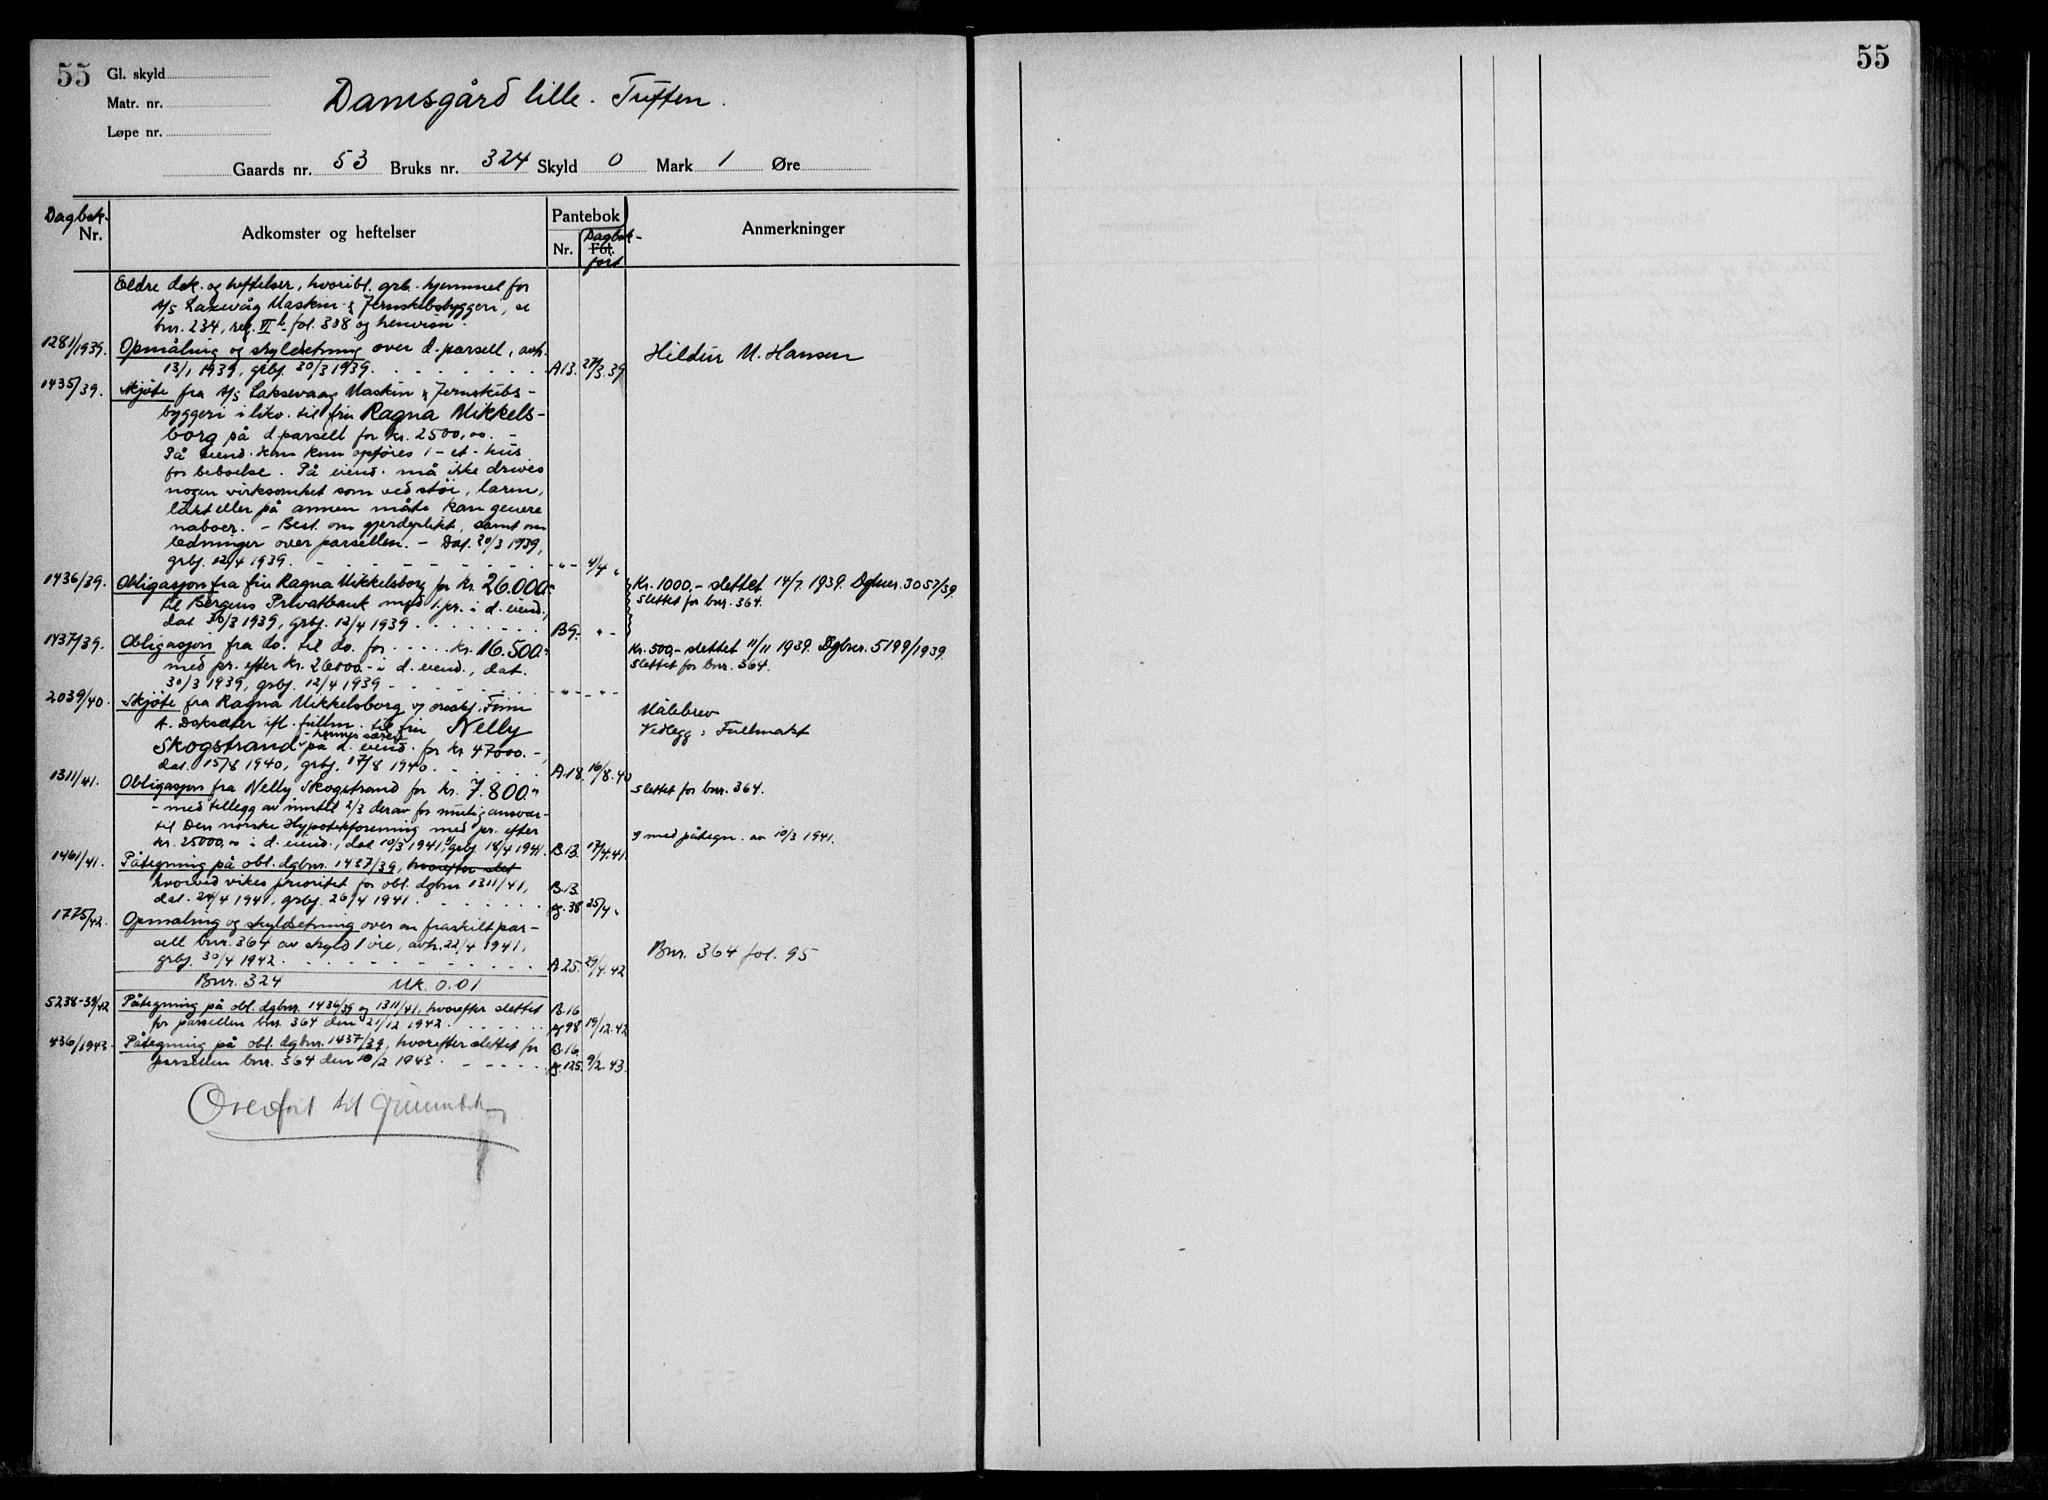 55
Gl. skyld
Matr. nr.
Løpe nr.
Damsgård lille. Tuften.
Gaards nr. 53 Bruks nr. 324 Skyld 0 Mark 1 Øre
Dagbok-
Nr.
Adkomster og heftelser
Pantebok
Nr.
Dagbok-
Fol.
ført
Anmerkninger
Eldre dok. og heftelser, hvoribl. grb. hjemmel for
A/S Laxevåg Maskin & Jernskibsbyggeri, se
bnr. 234, reg. VI b fol. 308 og henvisn.
1281/1939. Opmåling og skyldsetning over d. parsell, avh.
13/1 1939, grbj. 30/3 1939. A13. 29/3.39 Hildur M. Hansen
1435/39. Skjøte fra A/S Laksevaag Maskin & Jernskibs-
byggeri i likv. til fru Ragna Mikkels-
borg på d. parsell for kr. 2500,00. -
På eiend. kan kun opføres 1 - et - hus
for beboelse. På eiend. må ikke drives
nogen virksomhet som ved støi, larm,
lukt eller på annen måte kan genere
naboer. - Best. om gjerdeplikt, samt om
ledninger over parsellen. - Dat. 30/3 1939,
grbj. 12/4 1939. - " - 4/4 "
1436/39. Obligasjon fra fru Ragna Mikkelsborg for kr. 26.000.- Kr. 1000,- slettet 14/7 1939. Dgbnr. 3057/39.
til Bergens Privatbank med 1. pr. i d. eiend., slettet for bnr. 364.
dat. 30/3 1939, grbj. 12/4 1939. B9. - " -
1437/39. Obligasjon fra do. til do. for kr. 16.500.- Kr. 500,- slettet 11/11 1939. Dgbnr. 5199/1939.
med pr. efter kr. 26000.- i d. eiend., dat. slettet for bnr. 364.
30/3 1939, grbj. 12/4 1939 - " - - " -
2039/40. Skjøte fra Ragna Mikkelsborg v/ Finn Målebrev
A. ifl. fullm. til fru Nelly Vedlegg: Fullmakt
Skogstrand - hennes særeie - på d. eiend. for kr. 47000.-,
dat. 15/8 1940, grbj. 17/8 1940. A.18. 16/8.40
1311/41. Obligasjon fra Nelly Skogstrand for kr. 7.800.- slettet for bnr. 364.
- med tillegg av inntil 2/3 derav for mulig ansvar -
til Den norske Hypotekforening med pr. efter
kr. 25000,00 i d. eiend., dat. 10/3 1941, grbj. 18/4 1941. B.13. 17/4.41. med påtegn. av 10/3 1941.
1461/41. Påtegning på obl. dgbnr. 1437/39, hvorefter slet
hvorved vikes prioritet for obl. dgbnr 1311/41, B.13
dat. 24/4 1941, grbj. 26/4 1941. 38 25/4 "
1775/42. Opmåling og skyldsetning over en fraskilt par-
sell bnr. 364 av skyld 1 øre, avh. 22/4 1941, Bnr. 364 fol. 95
grbj. 30/4 1942. A25. 29/4.42
Bnr. 324 Mk. 0.01
5238-39/42 Påtegning på obl. dgbnr. 1436/39 og 1311/41, hvorefter slettet B.16
for parsellen bnr. 364 den 21/12 1942. 98 19/12.42
436/1943. Påtegning på obl. dgbnr. 1437/39, hvorefter slettet for B.16
parsellen bnr. 364 den 10/2 1943. 125. 9/2.43.
Overført til grunnbok
55